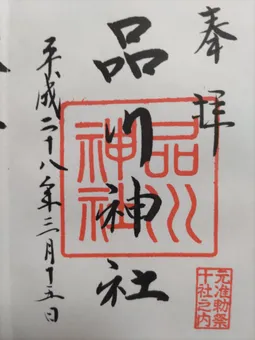 奉拝
品川神社
品川神社
元准勅祭
十社之内
平成二十八年三月十五日